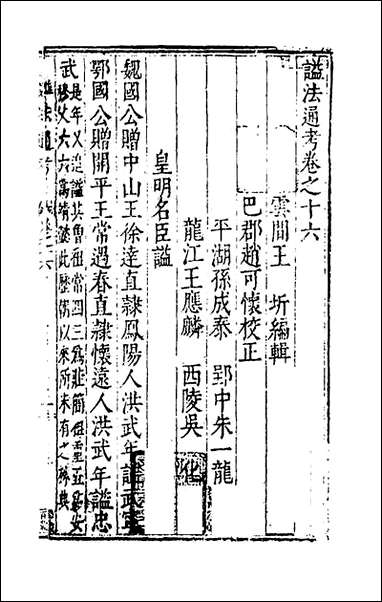 謚法通考卷之十六
雲間王　圻編輯
巴郡趙可懷校正
平湖孫成泰　郢中朱一龍
龍江王應麟　西陵吳　化
皇明名臣謚
魏國公贈中山王徐達直隸鳳陽人洪武年謚武寧
鄂國公贈開平王常遇春直隸懷遠人洪武年謚忠
武
是年又追謚其曾祖常四三為莊簡祖重五為安
穆父六六為靖懿此歷代以來所未有之殊典